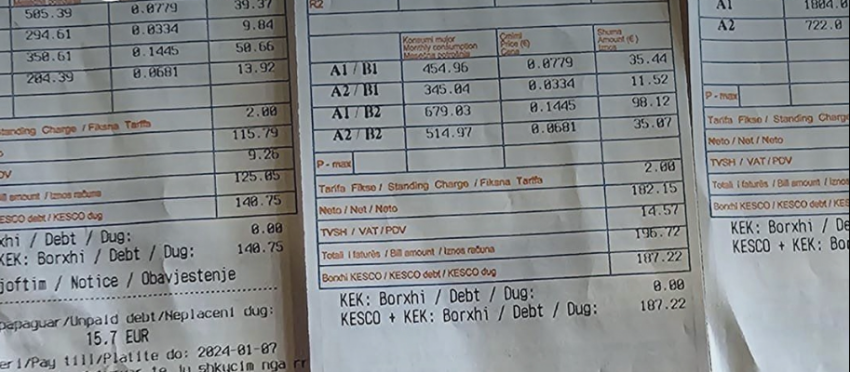 505.39 0.0779 39.37
294.61 0.0334 9.84
350.61 0.1445 50.66
204.39 0.0681 13.92
2.00
Standing Charge / Fiksna Tarifa
115.79
9.26
125.05
Bill amount / Iznos računa
140.75
KESCO debt / KESCO dug
Debt / Dug: 0.00
KEK: Borxhi / Debt / Dug: 140.75
Notice / Obavjestenje
/Unpaid debt/Neplaceni dug:
15.7 EUR
/Pay till/Platite do: 2024-01-07
R2
Konsumi mujor Çmimi Shuma
Monthly consumption Price (€) Amount (€)
Mesečna potrošnja Cena Iznos
A1 / B1 454.96 0.0779 35.44
A2 / B1 345.04 0.0334 11.52
A1 / B2 679.03 0.1445 98.12
A2 / B2 514.97 0.0681 35.07
P - max
Tarifa Fikse / Standing Charge / Fiksna Tariffa 2.00
Neto / Net / Neto 182.15
TVSH / VAT / PDV 14.57
196.72
Totali i faturës / Bill amount / Iznos računa
Borxhi KESCO / KESCO debt / KESCO dug 187.22
KEK: Borxhi / Debt / Dug: 0.00
KESCO + KEK: Borxhi / Debt / Dug: 187.22
A1
A2 722.0
P - max
Tarifa Fikse / Standing
Neto / Net / Neto
TVSH / VAT / PDV
Totali i faturës / Bill amount /
Borxhi KESCO / KESCO debt /
KEK: Borxhi /
KESCO + KEK: